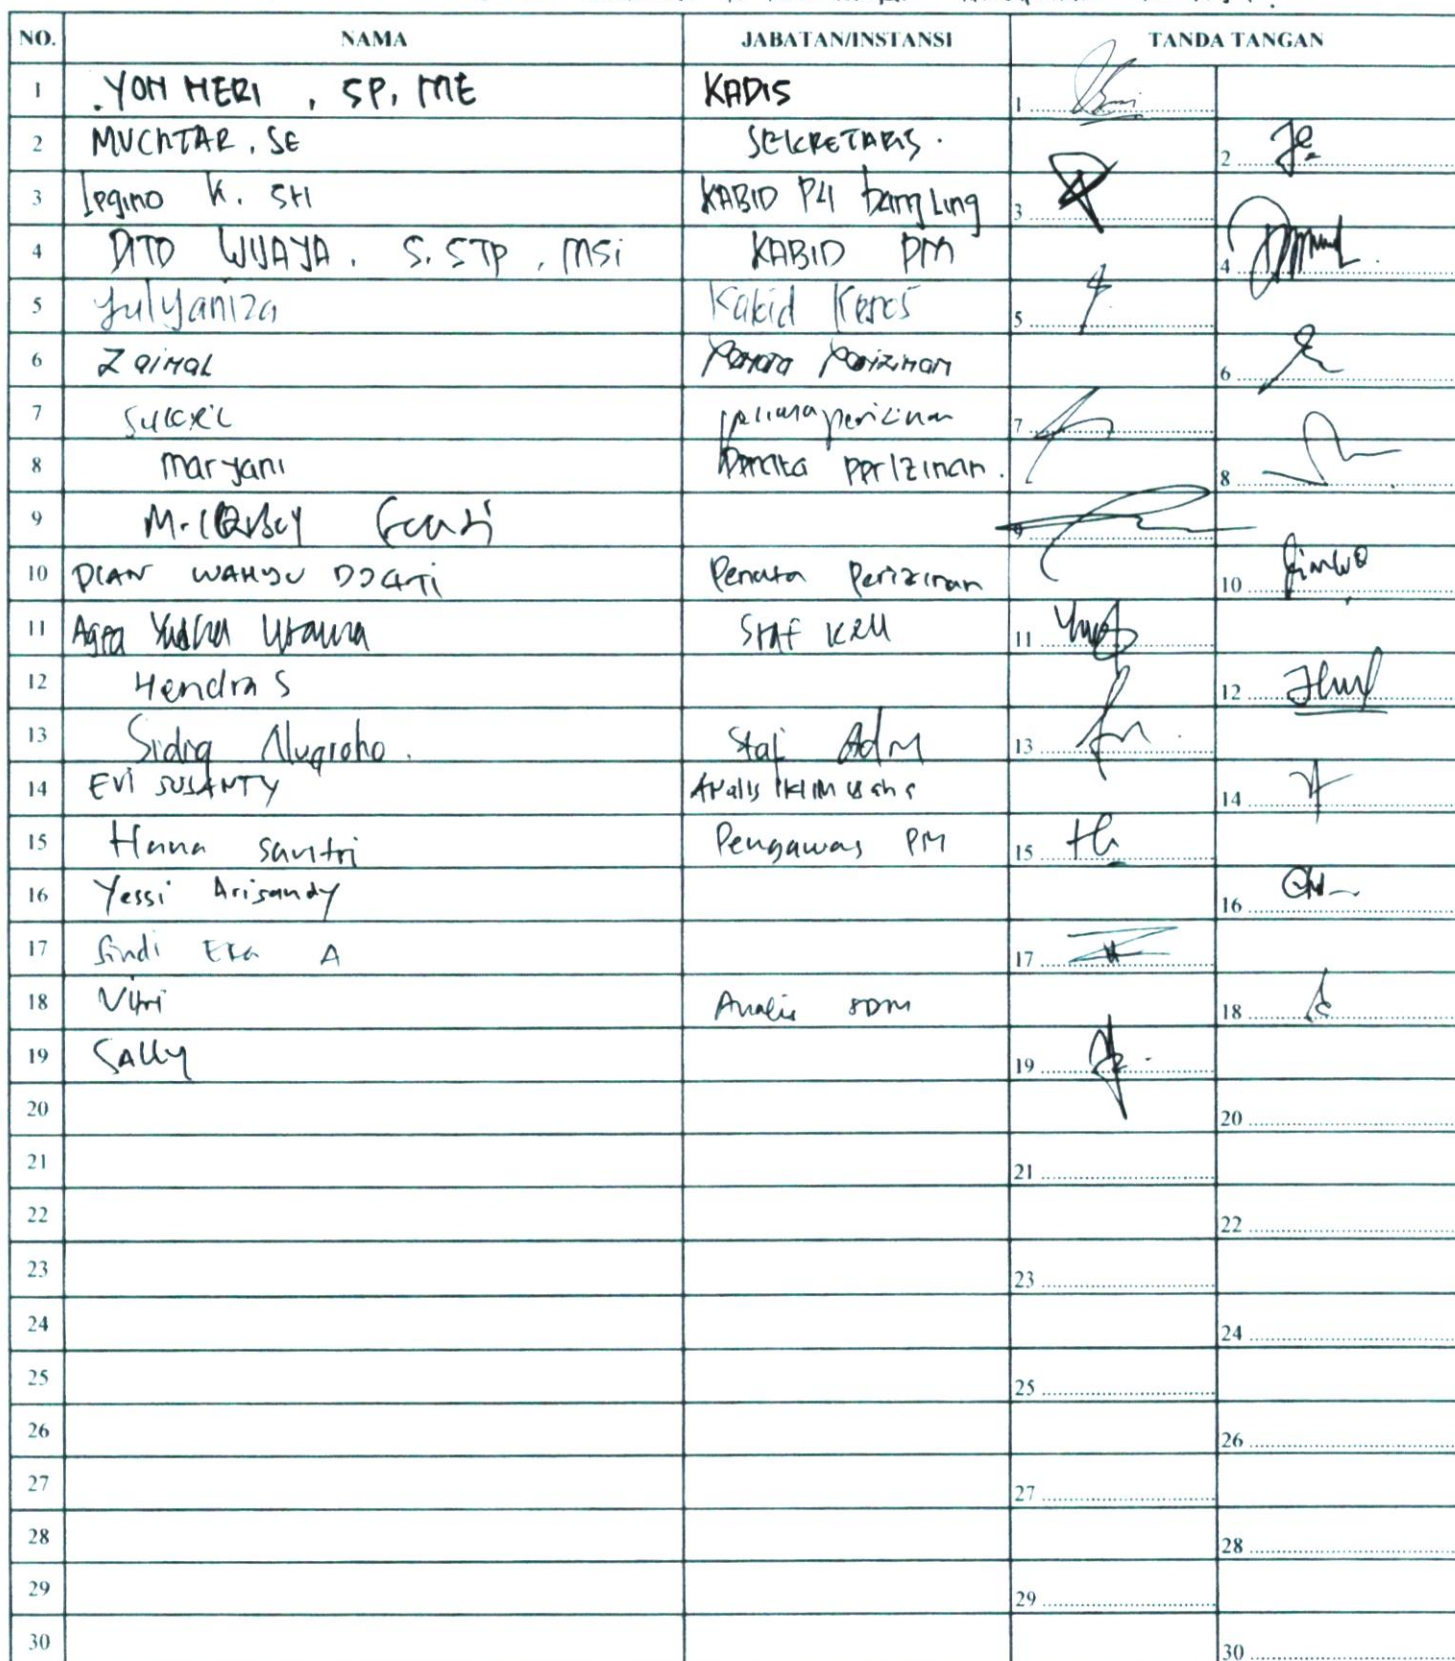 NO. NAMA JABATAN/INSTANSI TANDA TANGAN
1 YON HERI, SP, ME KADIS 1
2 MUCHTAR, SE SEKRETARIS. 2
3 K. SH KABID 3
4 DITO WIJAYA, S.STP, MSi KABID PM 4
5 Yulyaniza 5
6 Zainal 6
7 7
8 Maryani Penata Perizinan. 8
9 9
10 DIAN WAHYU Penata Perizinan 10
11 Agra Yudha Utama Staf 11
12 Hendra S 12
13 Sidiq Nugroho. Staf Adm 13
14 EVI SUSANTY Analis Iklim Usaha 14
15 Hanna Savitri Pengawas PM 15
16 Yessi Arisandy 16
17 Sindi Eka A 17
18 Vitri Analis SDM 18
19 Sally 19
20 20
21 21
22 22
23 23
24 24
25 25
26 26
27 27
28 28
29 29
30 30